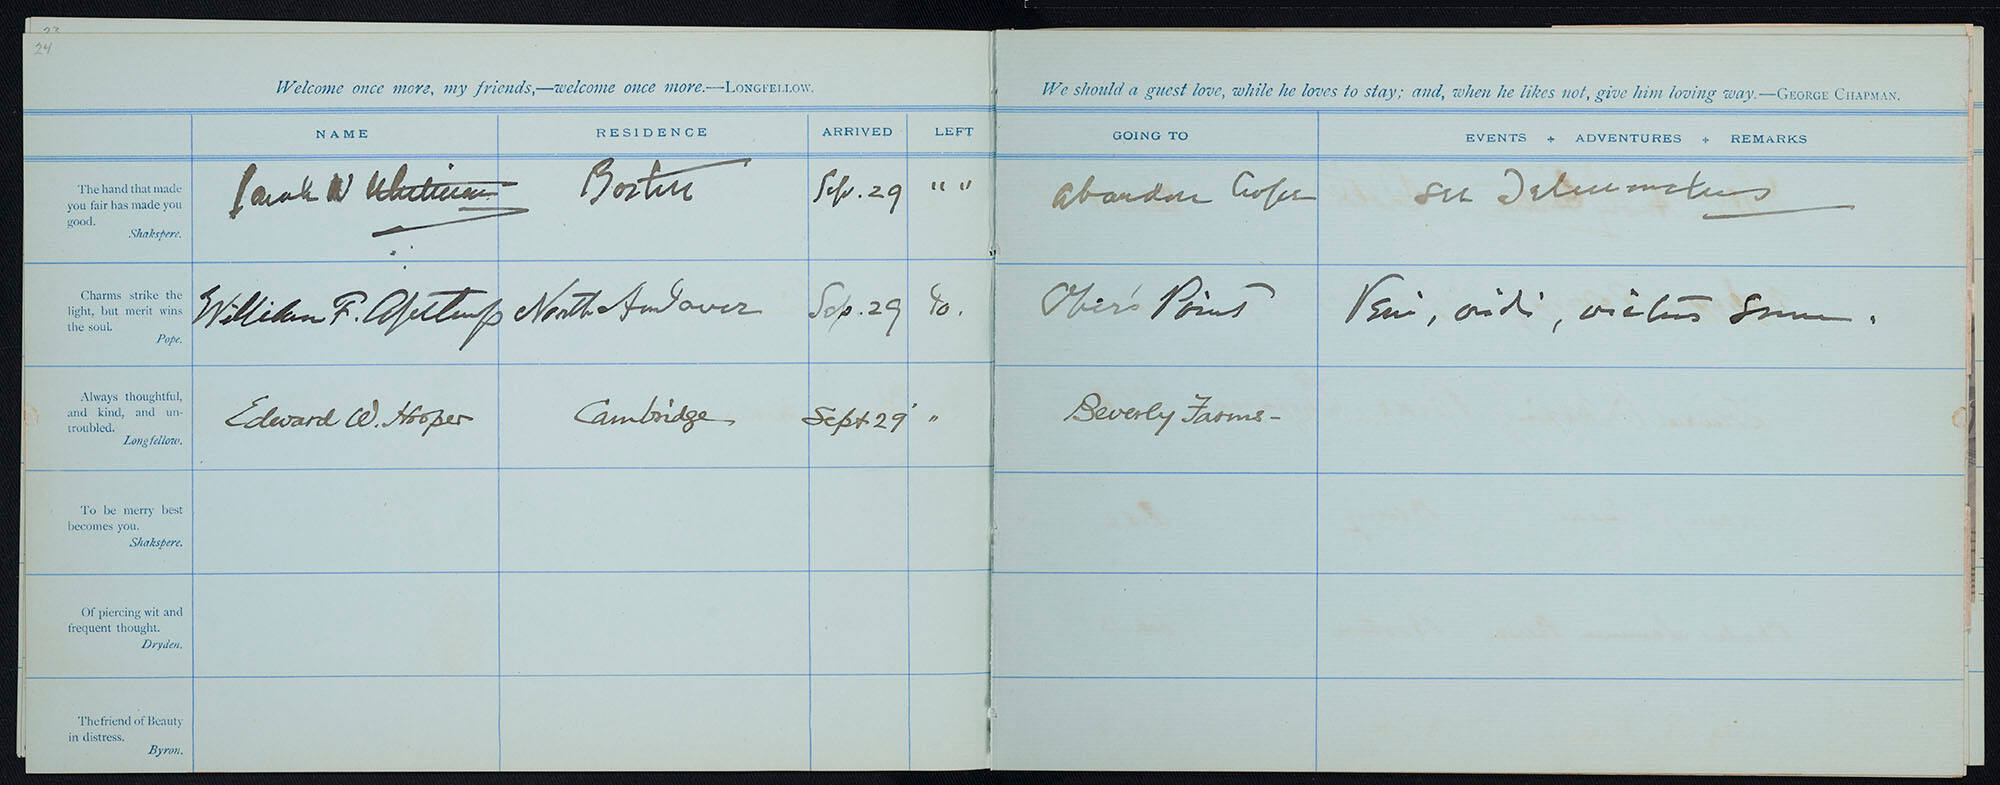 24
Welcome once more, my friends,—welcome once more.—LONGFELLOW.
We should a guest love, while he loves to stay; and, when he likes not, give him loving way.—GEORGE CHAPMAN.
NAME RESIDENCE ARRIVED LEFT GOING TO EVENTS + ADVENTURES + REMARKS
The hand that made
you fair has made you
good.
Shakspere.
Sarah W Whitman Boston Sep. 29 " " abandon
Charms strike the
light, but merit wins
the soul.
Pope.
William F. Apthorp North Andover Sep. 29 Do. Ober's Point Veni, vidi, victus sum.
Always thoughtful,
and kind, and un-
troubled.
Longfellow.
Edward W. Hooper Cambridge Sept 29 " Beverly Farms-
To be merry best
becomes you.
Shakspere.
Of piercing wit and
frequent thought.
Dryden.
The friend of Beauty
in distress.
Byron.